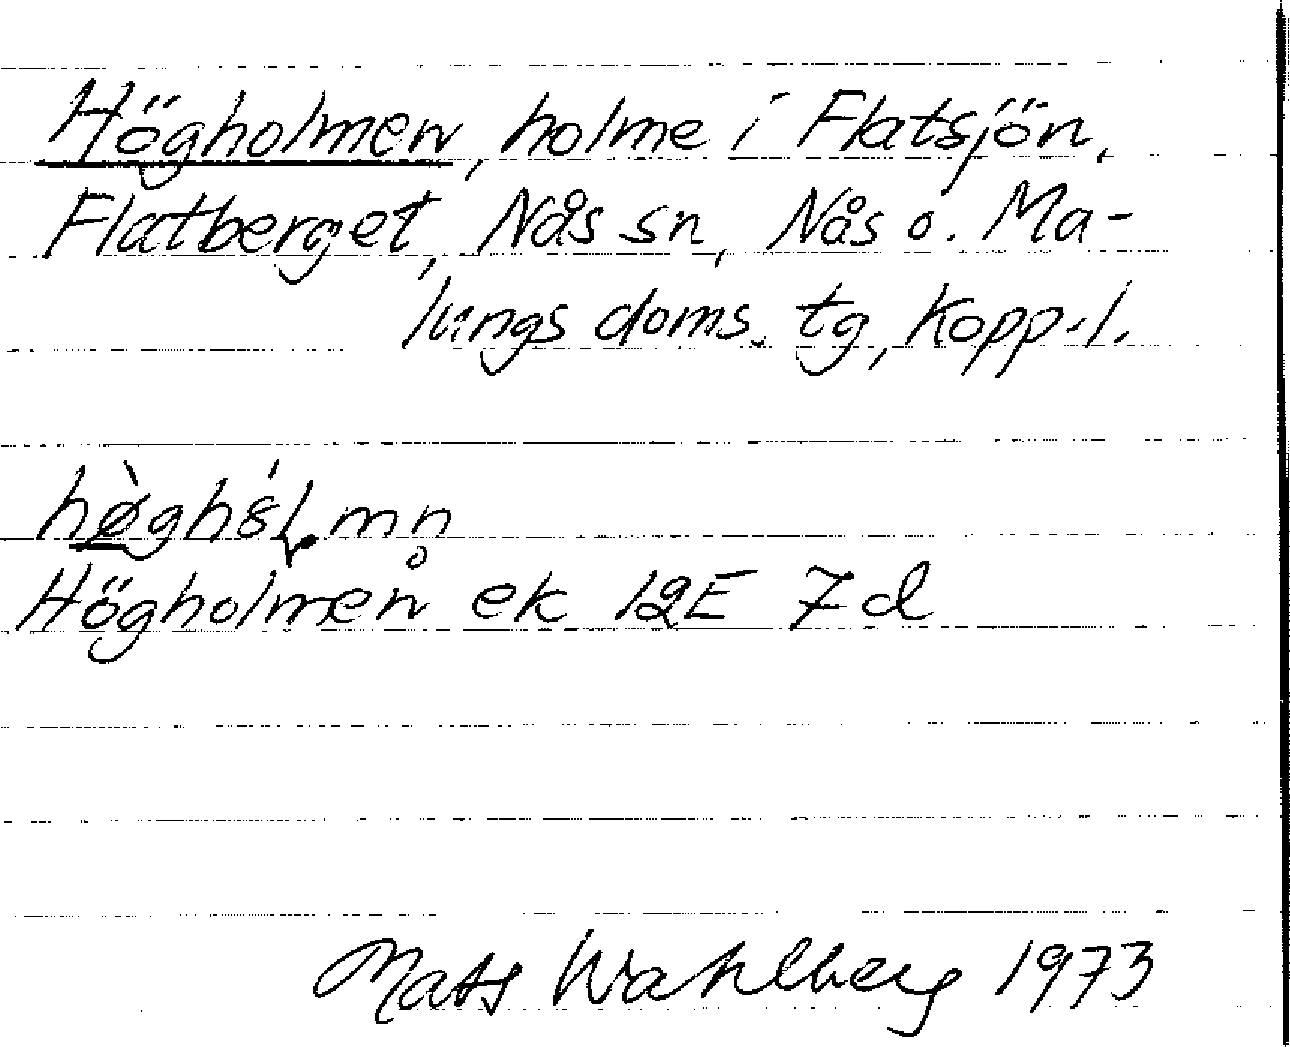 Högholmen, holme i Flatsjön,
Flatberget, Nås sn, Nås o. Ma-
lungs doms. tg, Kopp.l.
Högholmen ek 12E 7d
Mats Wahlberg 1973